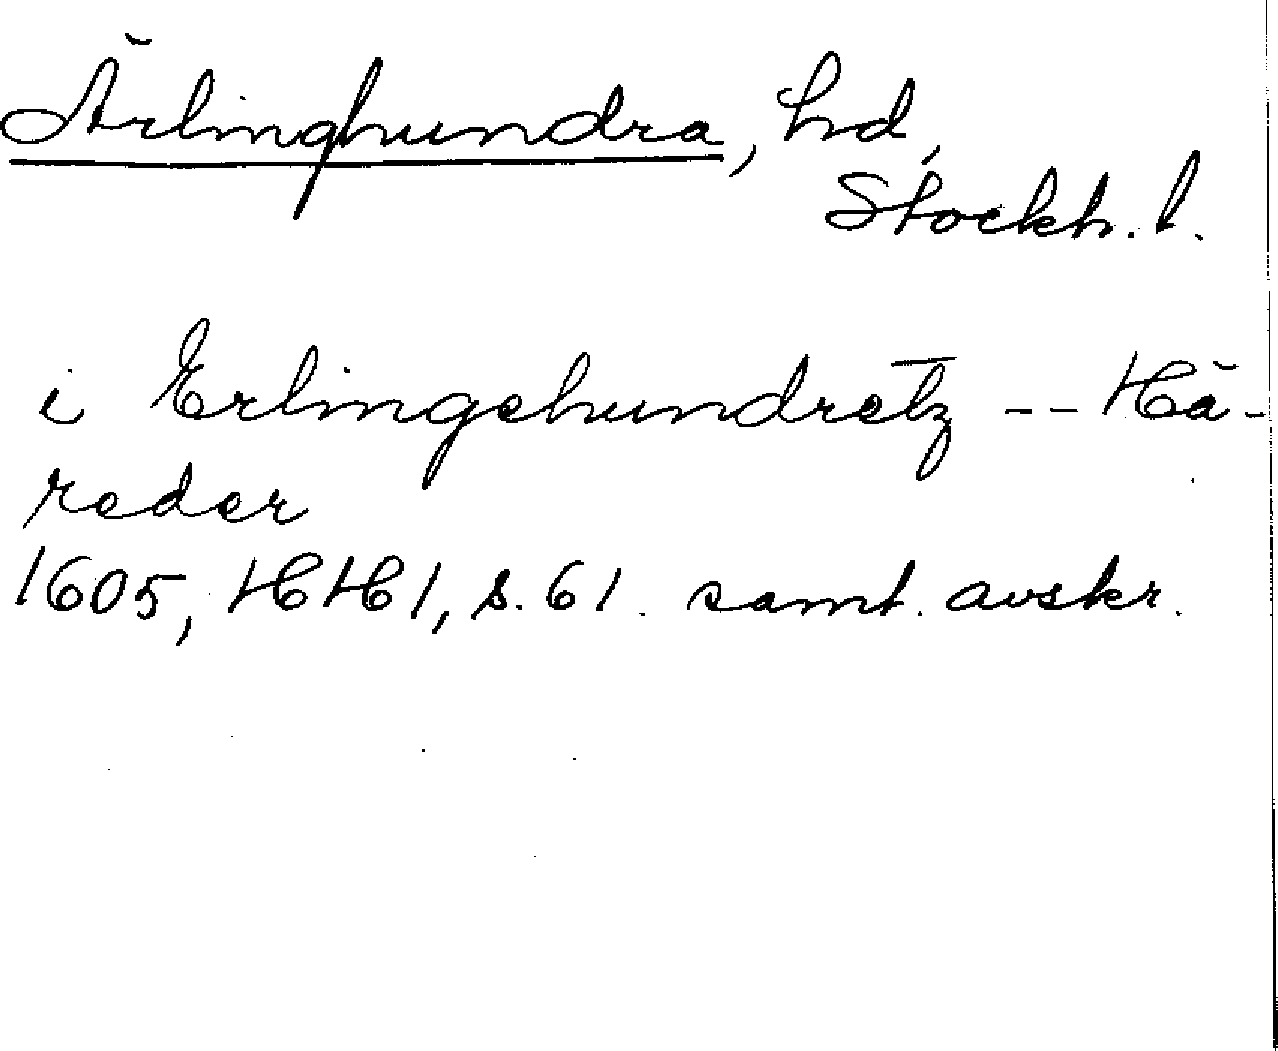 Ärlinghundra, hd,
Stockh. l.
i Erlingehundretz -- Hä-
reder
1605, HH 1, s. 61. samt. avskr.